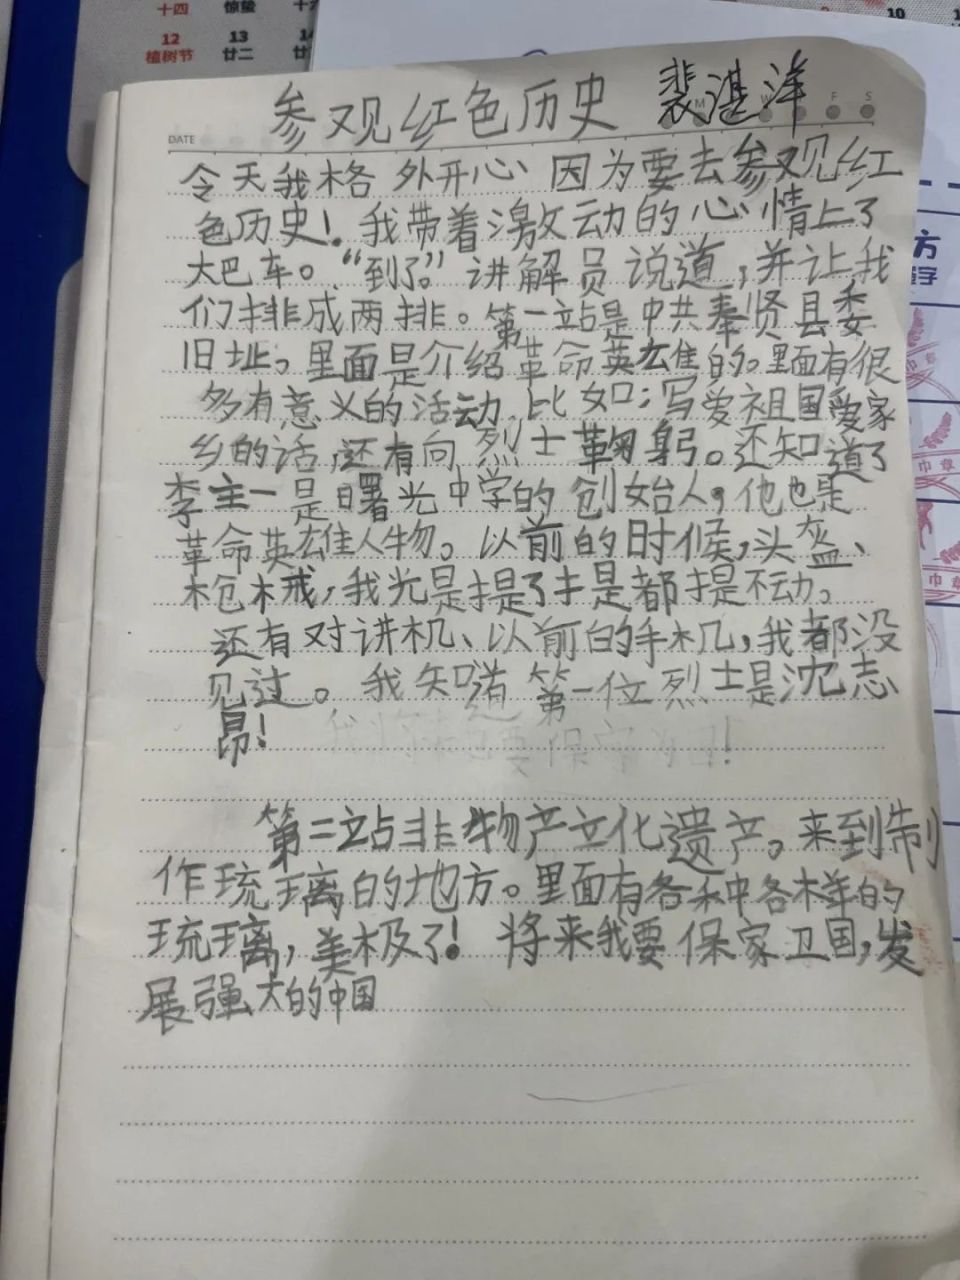 十四 惊蛰 十六
12 13 14
植树节 廿二 廿
10
方
字
巾章
巾章
参观红色历史 裴湛洋
DATE M W F S
令天我格外开心 因为要去参观红
色历史！我带着激动的心情上了
大巴车。“到了”讲解员说道，并让我
们排成两排。第一站是中共奉贤县委
旧址。里面是介绍革命英雄的。里面有很
多有意义的活动 比如：写爱祖国爱家
乡的话，还有向烈士鞠躬。还知道了
李主一是曙光中学的创始人，他也是
革命英雄人物。以前的时候，头盔、
枪械，我光是提了才是都提不动。
还有对讲机、以前的手机，我都没
见过。我知道第一位烈士是沈志
昂！
第二站非物产文化遗产。来到制
作琉璃的地方。里面有各种各样的
琉璃，美极了！将来我要保家卫国，发
展强大的中国